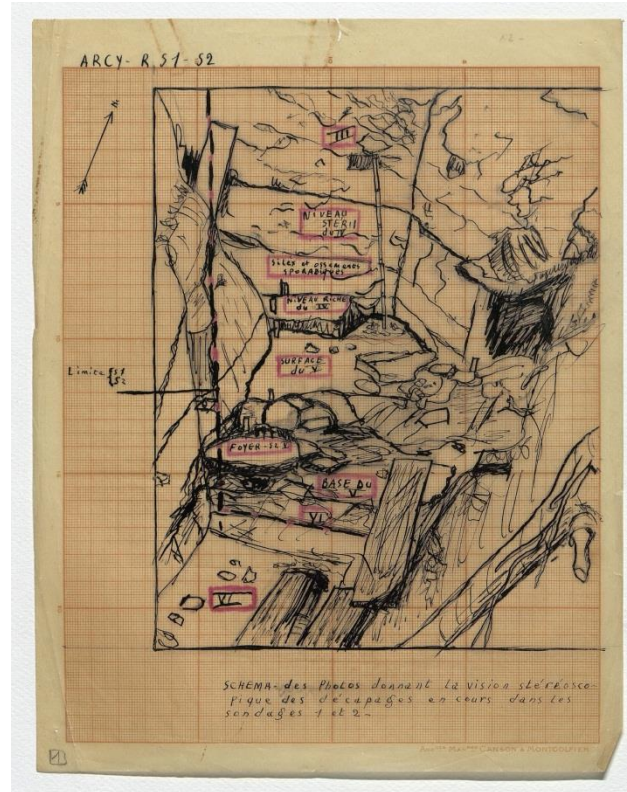 ARCY- R. S1- S2
N
III
NIVEAU
STERIL
du IV
Silex et ossements
SPORADIQUES
NIVEAU RICHE
du IV
SURFACE
du V
Limite S1
S2
FOYER-S2
BASE DU
V
VI
VI
SCHEMA-des Photos donnant la vision stéréosco-
pique des décapages en cours dans les
sondages 1 et 2-
CANSON & MONTGOLFIER
1